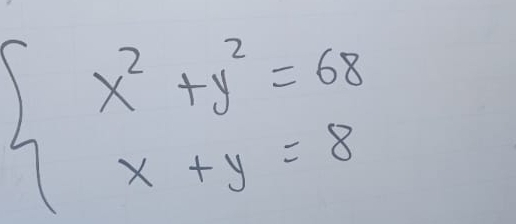 x² + y² = 68
x + y = 8